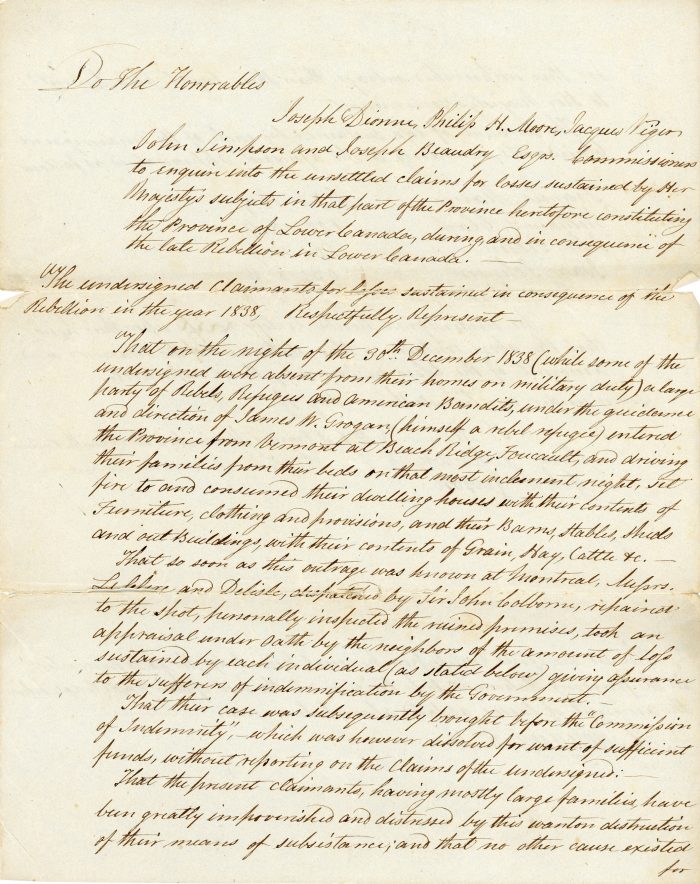 To The Honorables
Joseph Dionne, Philip H. Moore, Jacques Viger
John Simpson and Joseph Beaudry Esqrs. Commissioners
to enquire into the unsettled claims for losses sustained by Her
Majesty's subjects in that part of the Province heretofore constituting
the Province of Lower Canada, during, and in consequence of
the late Rebellion in Lower Canada. —
The undersigned Claimants for losses sustained in consequence of the
Rebellion in the year 1838, Respectfully Represent —
That on the night of the 30th December 1838 (while some of the
undersigned were absent from their homes on military duty) a large
party of Rebels, Refugees and American Bandits, under the guidance
and direction of James W. Grogan, (himself a rebel refugee) entered
the Province from Vermont at Beach Ridge, Foucault, and driving
their families from their beds on that most inclement night, set
fire to and consumed their dwelling houses with their contents of
Furniture, clothing and provisions, and their Barns, Stables, sheds
and out Buildings, with their contents of Grain, Hay, Cattle &c. —
That so soon as this outrage was known at Montreal, Messrs.
and Delisle, dispatched by Sir John Colborne, repaired
to the spot, personally inspected the ruined premises, took an
appraisal under Oath by the neighbors of the amount of loss
sustained by each individual (as stated below) giving assurance
to the sufferers of indemnification by the Government. —
That their case was subsequently brought before the "Commission
of Indemnity", — which was however dissolved for want of sufficient
funds, without reporting on the Claims of the undersigned: —
That the present claimants, having mostly large families, have
been greatly impoverished and distressed by this wanton distruction
of their means of subsistance; and that no other cause existed
for